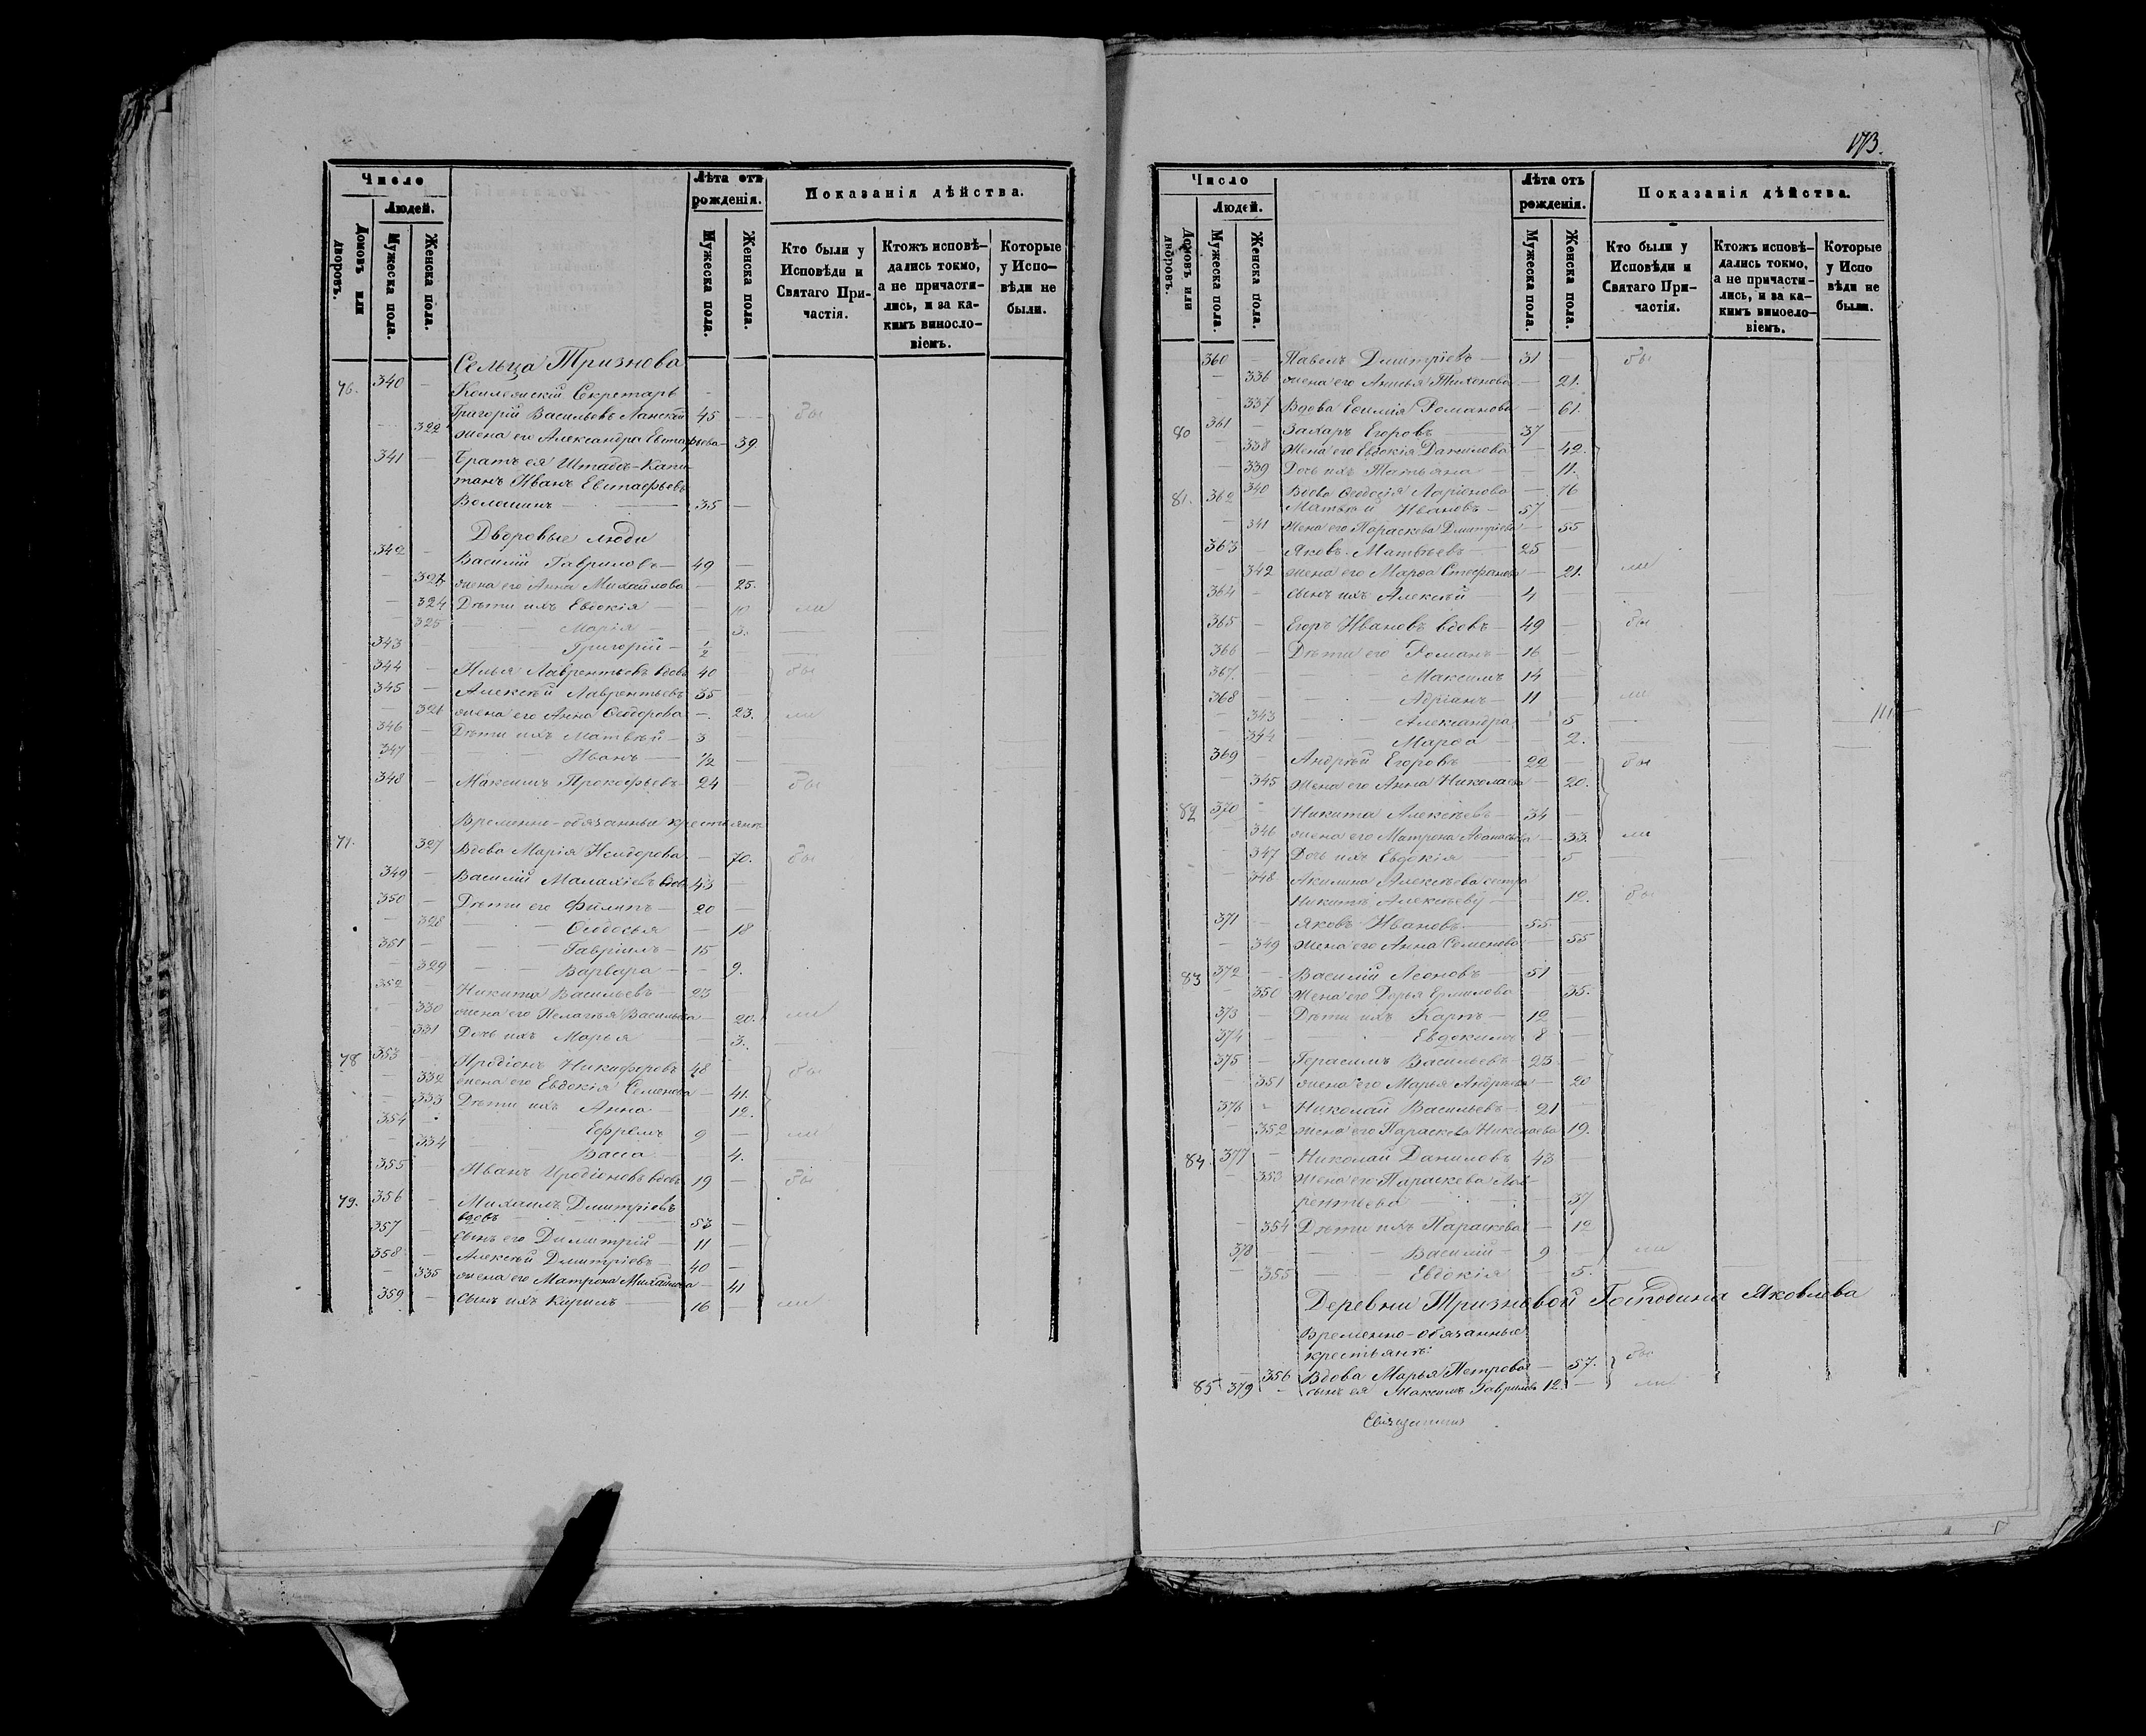 Число
Людей.
Домовъ или дворовъ.
Мужеска пола.
Женска пола.
Лѣта отъ рожденія.
Мужеска пола.
Женска пола.
Показанія дѣйства.
Кто были у Исповѣди и Святаго При-частія.
Ктожъ исповѣ-дались токмо, а не причасти-лись, и за ка-кимъ виносло-віемъ.
Которые у Испо-вѣди не были.
Сельца Тризнова
76. 340 — Коллежскій Секретарь
Григорій Васильевъ Ланской 45 — бы
— 322 жена его Александра Евстафьева — 39
341 — Братъ ея Штабсъ-Капи
танъ Иванъ Евстафьевъ
Волошинъ — 35 —
Дворовые люди
342 — Василій Гавриловъ — 49 —
— 323 жена его Анна Михайлова — 25.
— 324 Дѣти ихъ Евдокія — 10 ли
— 325 Марія — 3. —
343 — Григорій — 1/2 —
344 — Илья Лаврентьевъ вдовъ 40 — бы
345 — Алексѣй Лаврентьевъ 35 —
— 326 жена его Анна Ѳеодорова — 23. ли
346 — Дѣти ихъ Матвѣй — 3 —
347 — Иванъ — 1/2 —
348 — Максимъ Прокофьевъ — 24 — бы
Временно-обязанные крестьяне
77. 327 Вдова Марія Исидорова — 70. бы
349 — Василій Малахіевъ вдовъ 43 —
350 — Дѣти его Филипъ — 20 —
— 328 Ѳеодосья — 18
351 — Гавріилъ — 15
— 329 Варвара — 9.
352 — Никита Васильевъ — 23 —
— 330 жена его Пелагея Васильева — 20. ли
— 331 Дочь ихъ Марья — 3. —
78 353 — Иродіонъ Никифоровъ 48 — бы
— 332 жена его Евдокія Семенова — 41.
— 333 Дѣти ихъ Анна — 12.
354 — Ефремъ 9 — ли
— 334 Васса — 4. —
355 — Иванъ Иродіоновъ вдовъ 19 — бы
79. 356 — Михаилъ Димитріевъ
вдовъ — 53 —
357 — сынъ его Димитрій — 11 —
358 — Алексѣй Димитріевъ — 40 —
— 335 жена его Матрона Михайлова — 41
359 — сынъ ихъ Кирилъ — 16 — ли
173.
Число
Людей.
Домовъ или дворовъ.
Мужеска пола.
Женска пола.
Лѣта отъ рожденія.
Мужеска пола.
Женска пола.
Показанія дѣйства.
Кто были у Исповѣди и Святаго При-частія.
Ктожъ исповѣ-дались токмо, а не причасти-лись, и за ка-кимъ винослo-віемъ.
Которые у Испо вѣди не были.
360 — Павелъ Дмитріевъ — 31 — бы
— 336 жена его Анисья Тихонова — 21.
— 337 Вдова Евфимія Романова — 61.
80 361 — Захаръ Егоровъ — 37 —
— 338 Жена его Евдокія Данилова — 42.
— 339 Дочь ихъ Татьяна — 11.
340 Вдова Ѳеодосія Ларіонова — 76
81. 362 Матвѣй Ивановъ — 57 —
— 341 Жена его Параскева Дмитріева — 55
363 — Яковъ Матвѣевъ — 25 —
— 342 жена его Марѳа Стефанова — 21. ли
364 — сынъ ихъ Алексѣй — 4 —
365 — Егоръ Ивановъ вдовъ — 49 — бы
366 — Дѣти его Романъ — 16 —
367. — Максимъ 14 —
368 — Адріанъ — 11 — ли
— 343 Александра — 5 —
— 344 Марѳа — 2. —
369 — Андрѣй Егоровъ — 22 — бы
— 345 Жена его Анна Николаева — 20.
82 370 — Никита Алексѣевъ — 34 —
— 346 жена его Матрона Аѳанасьева — 33. ли
— 347 Дочь ихъ Евдокія — 5 —
— 348 Акилина Алексѣева сестра
Никитѣ Алексѣеву — 12. бы
371 — Яковъ Ивановъ — 55
— 349 Жена его Анна Семенова — 55
83 372 — Василій Леоновъ — 51 —
— 350 Жена его Дарья Ермилова — 35.
373 — Дѣти ихъ Карпъ — 12 —
374 — Евдокимъ 8 —
375 — Герасимъ Васильевъ — 23 —
— 351 жена его Марья Андреева — 20
376 — Николай Васильевъ — 21 —
— 352 жена его Параскева Николаева 19.
84. 377 — Николай Даниловъ 43 —
— 353 Жена его Параскева Лав-
рентьева — 37
— 354 Дѣти ихъ Параскева — 12
378 — Василій — 9 — ли
— 355 Евдокія — 5. —
Деревни Тризновой Господина Яковлева
Временно-обязанные
крестьяне:
— 356 Вдова Марья Петрова — 57. бы
85 379 — сынъ ея Максимъ Гавриловъ 12. — ли
Священникъ